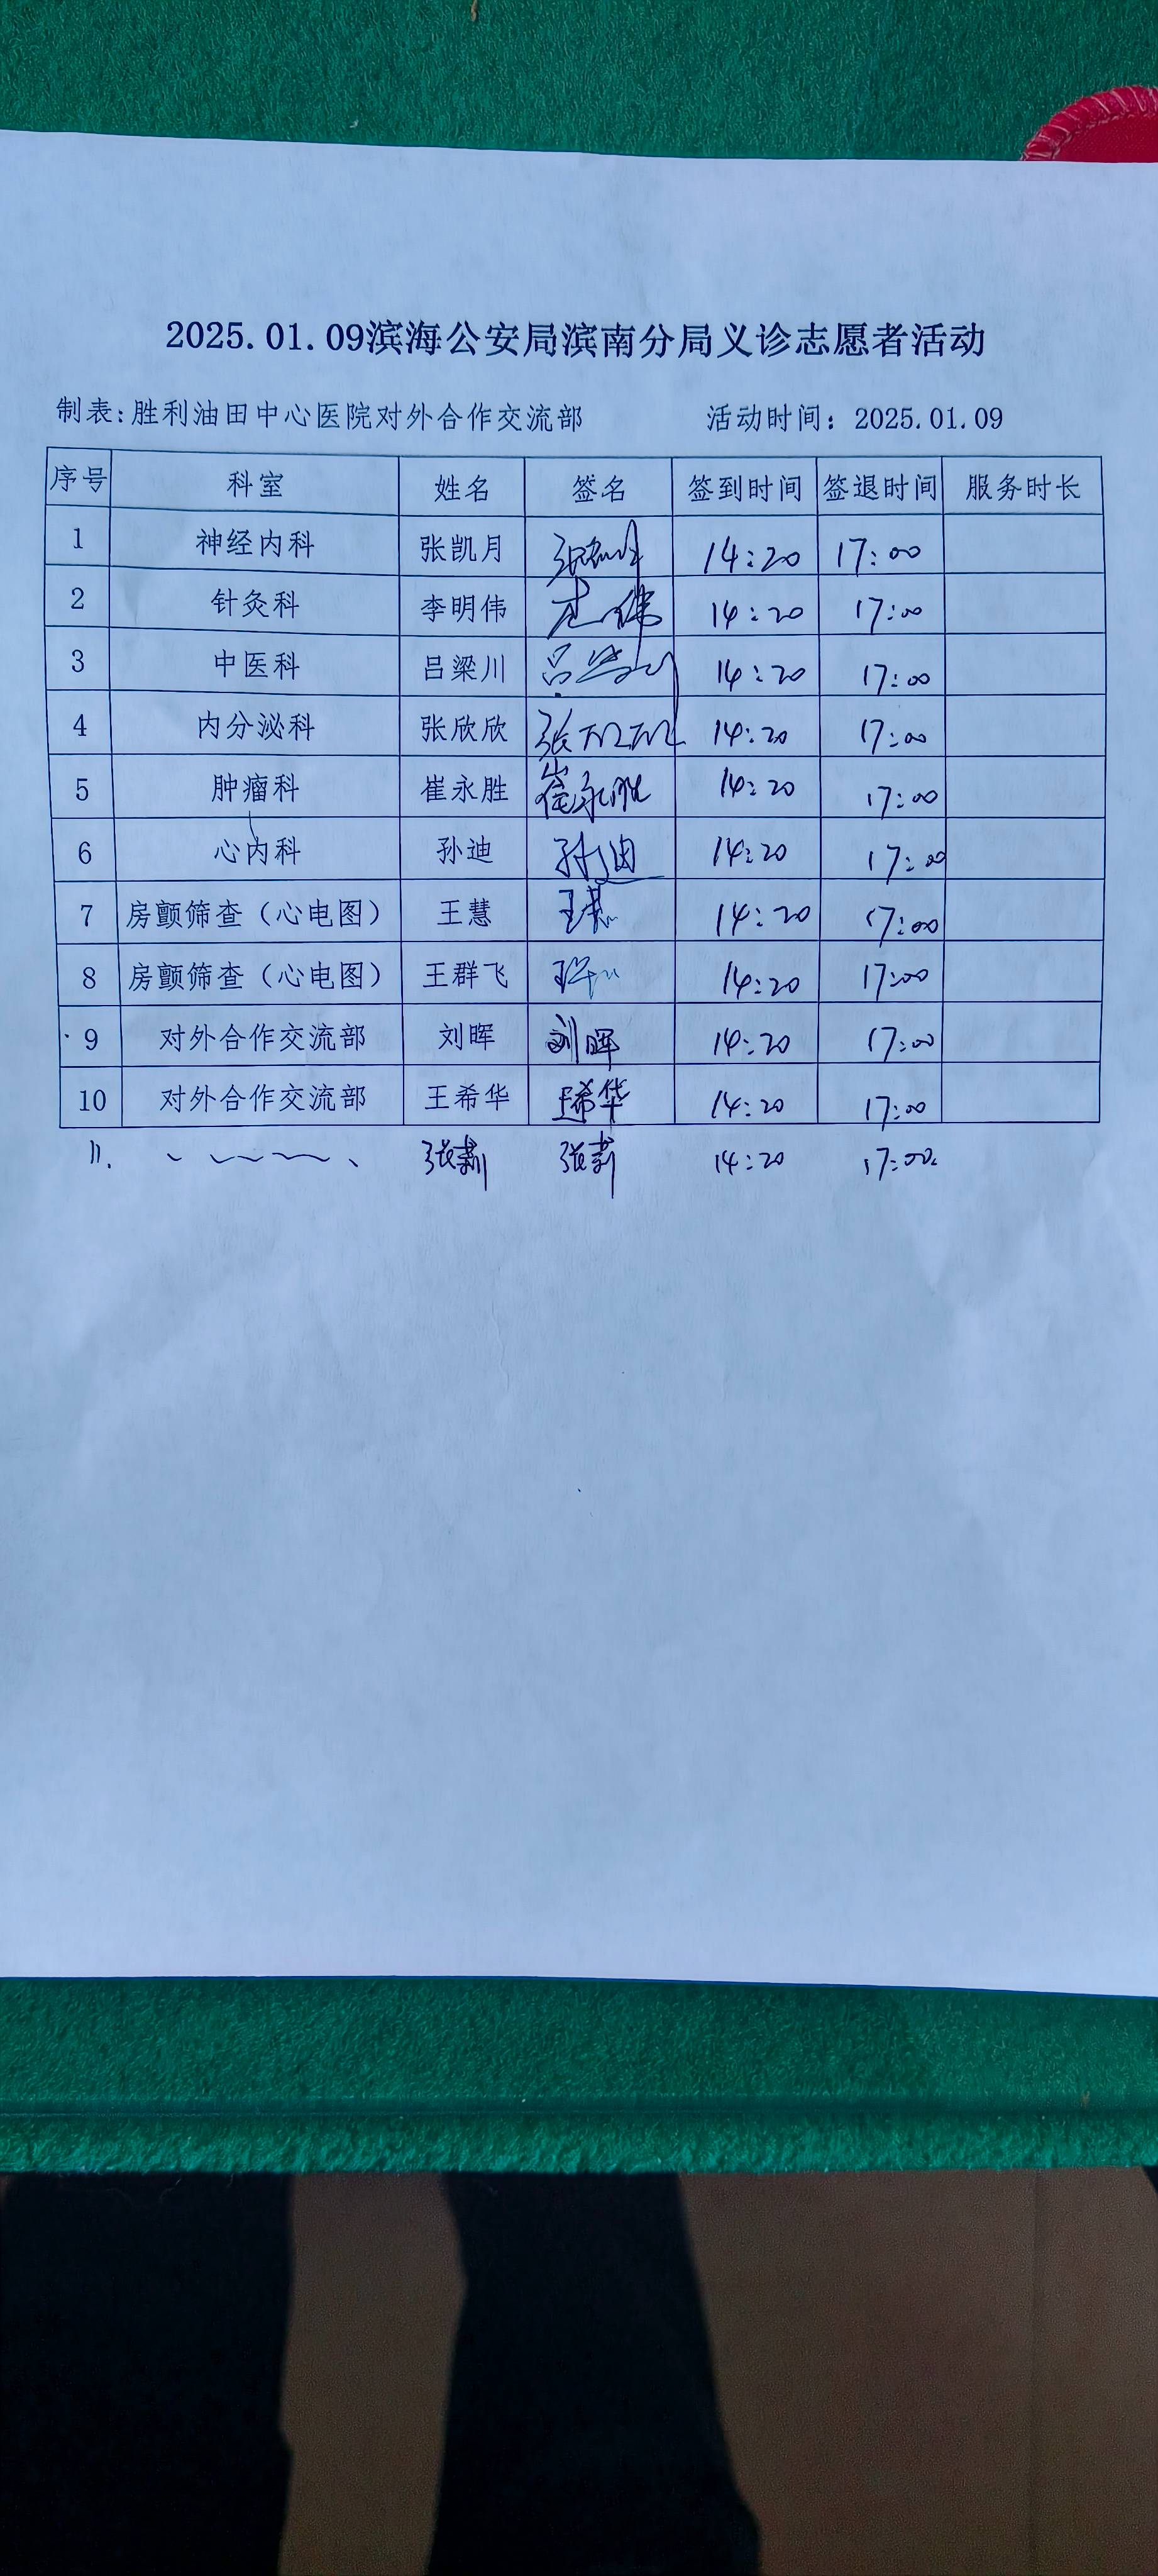 2025.01.09滨海公安局滨南分局义诊志愿者活动
制表:胜利油田中心医院对外合作交流部 活动时间：2025.01.09
序号 科室 姓名 签名 签到时间 签退时间 服务时长
1 神经内科 张凯月 张凯月 14:20 17:00
2 针灸科 李明伟 14:20 17:00
3 中医科 吕梁川 吕梁川 14:20 17:00
4 内分泌科 张欣欣 张欣欣 14:20 17:00
5 肿瘤科 崔永胜 崔永胜 14:20 17:00
6 心内科 孙迪 孙迪 14:20 17:00
7 房颤筛查（心电图） 王慧 王慧 14:20 17:00
8 房颤筛查（心电图） 王群飞 14:20 17:00
9 对外合作交流部 刘晖 刘晖 14:20 17:00
10 对外合作交流部 王希华 王希华 14:20 17:00
11. 张 张 14:20 17:00